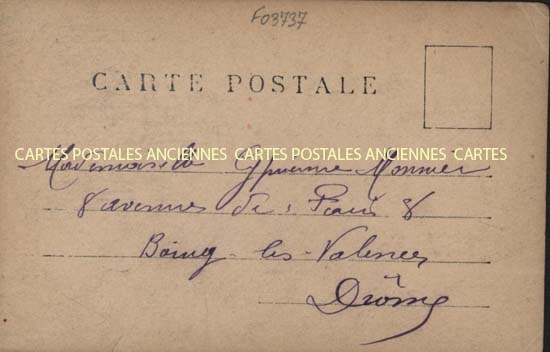 F03737
CARTE POSTALE
CARTES POSTALES ANCIENNES CARTES POSTALES ANCIENNES CARTES
Mademoiselle Monnier
8 avenue de Paris 8
Bourg-les-Valence
Drôme